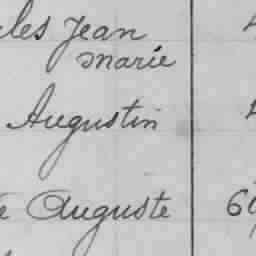 les Jean
marie
Augustin
Auguste 60